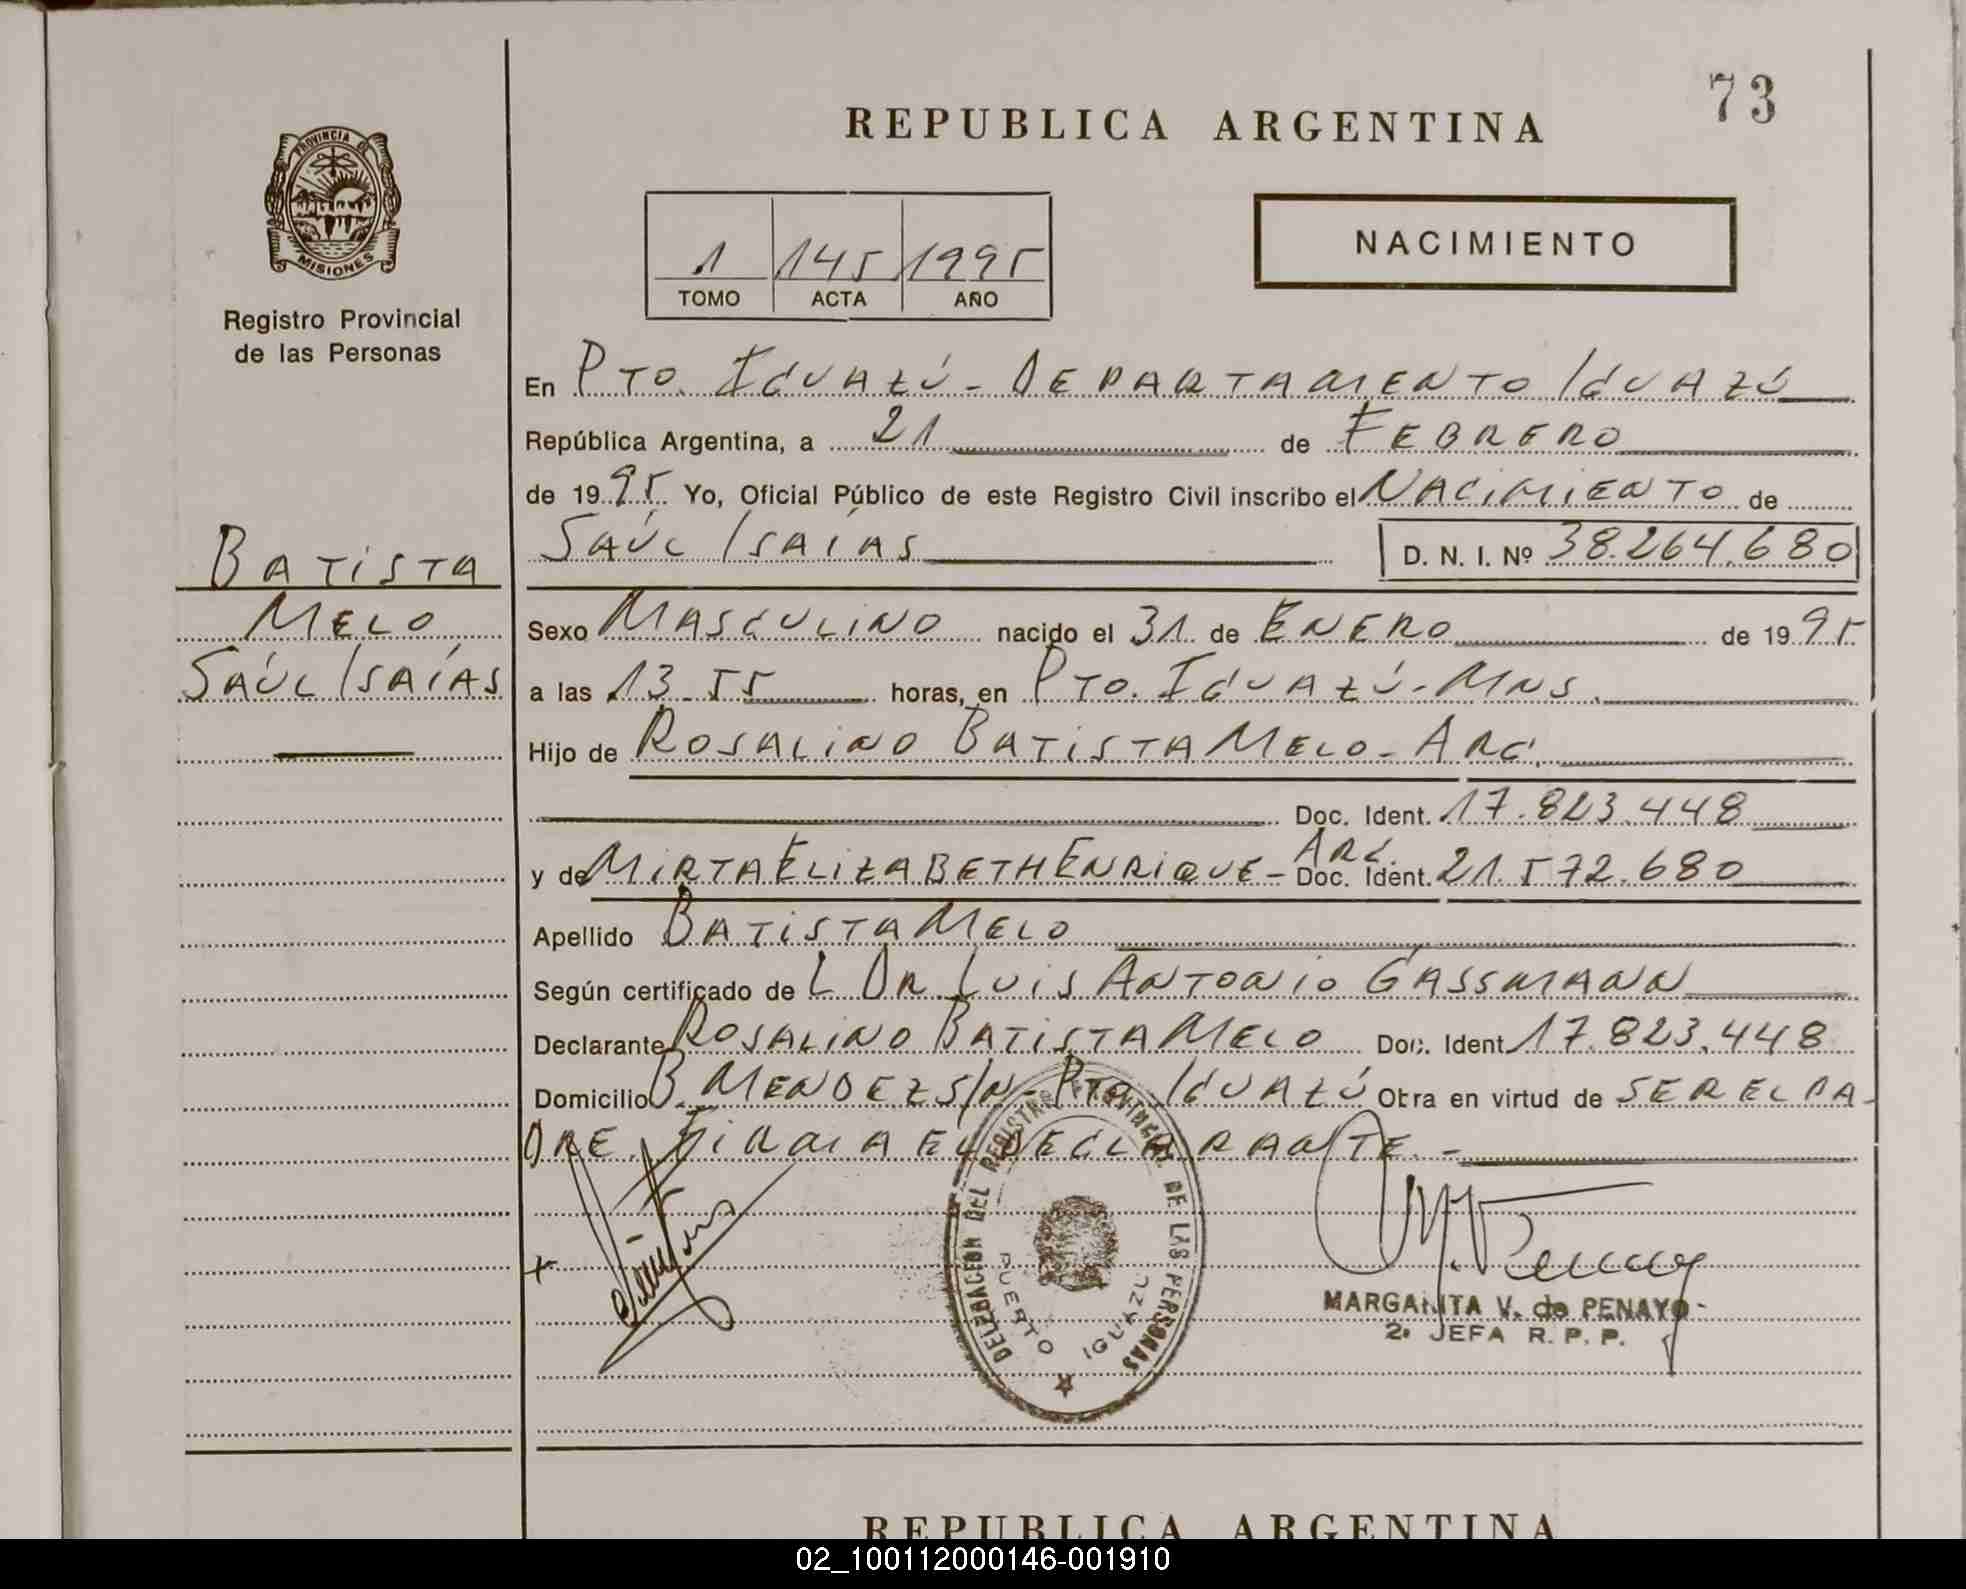 73
REPUBLICA ARGENTINA
PROVINCIA DE
MISIONES
Registro Provincial
de las Personas
1 145 1995
TOMO ACTA AÑO
NACIMIENTO
En PTO. IGUAZÚ - DEPARTAMENTO IGUAZÚ
República Argentina, a 21 de FEBRERO
de 1995 Yo, Oficial Público de este Registro Civil inscribo el NACIMIENTO de
SAÚL ISAÍAS D. N. I. Nº 38.264.680
BATISTA
MELO
SAÚL ISAÍAS
Sexo MASCULINO nacido el 31 de ENERO de 1995
a las 13.55 horas, en PTO. IGUAZÚ - MNS.
Hijo de ROSALINO BATISTA MELO - ARG.
Doc. Ident. 17.823.448
y de MIRTA ELIZABETH ENRIQUE - ARG. Doc. Ident. 21.572.680
Apellido BATISTA MELO
Según certificado de L DR LUIS ANTONIO GASSMANN
Declarante ROSALINO BATISTA MELO Doc. Ident 17.823.448
Domicilio B. MENDEZ S/N - PTO. IGUAZÚ Obra en virtud de SER EL PA-
DRE. FIRMA EL DECLARANTE. -
DELEGACION DEL REGISTRO PROVINCIAL DE LAS PERSONAS
PUERTO IGUAZU
MARGARITA V. de PENAYO
2ª JEFA R. P. P.
REPUBLICA ARGENTINA
02_100112000146-001910